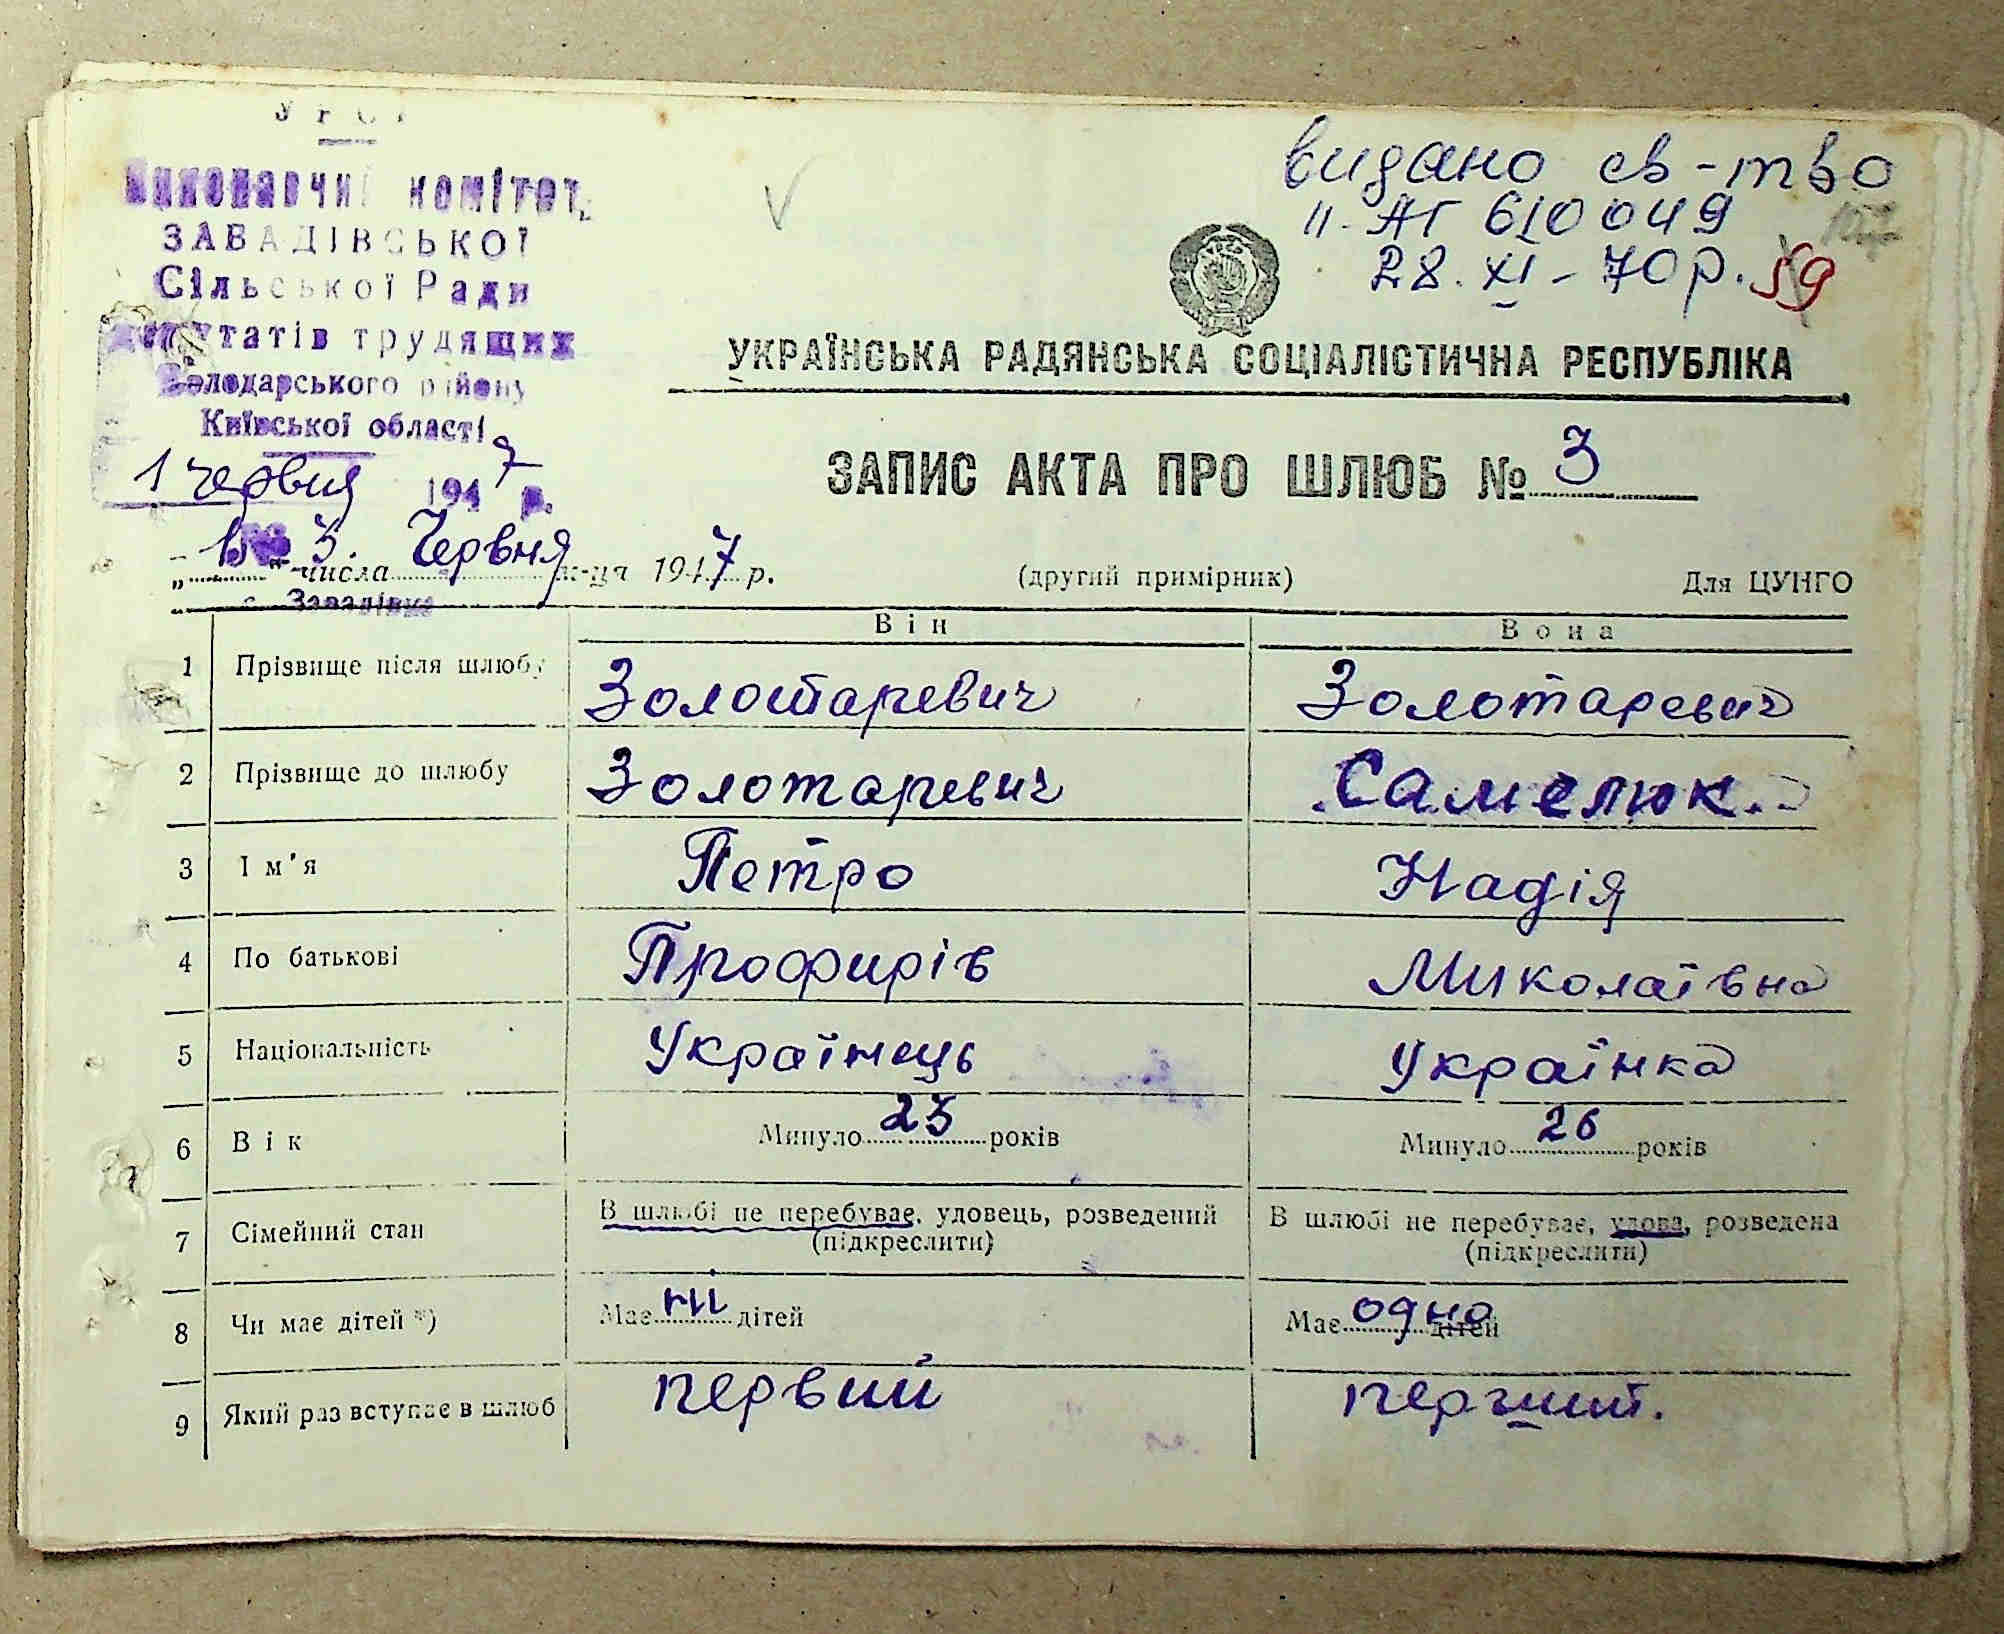 УРСР
Виконавчий комітет
ЗАВАДІВСЬКОЇ
Сільської Ради
депутатів трудящих
Володарського району
Київської області
1 червня 1947 р.
видано св-тво
II-АГ 610049
28.XI-70р. 59
УКРАЇНСЬКА РАДЯНСЬКА СОЦІАЛІСТИЧНА РЕСПУБЛІКА
ЗАПИС АКТА ПРО ШЛЮБ № 3
числа Червня м-ця 1947 р. (другий примірник) Для ЦУНГО
с. Завадівка
Він Вона
1 Прізвище після шлюбу Золотаревич Золотаревич
2 Прізвище до шлюбу Золотаревич Самелюк
3 Ім'я Петро Надія
4 По батькові Профирів Миколаївна
5 Національність Українець Українка
6 Вік Минуло 23 років Минуло 26 років
7 Сімейний стан В шлюбі не перебуває, удовець, розведений В шлюбі не перебуває, удова, розведена
(підкреслити) (підкреслити)
8 Чи має дітей *) Має ні дітей Має одно дітей
9 Який раз вступає в шлюб первий перший.